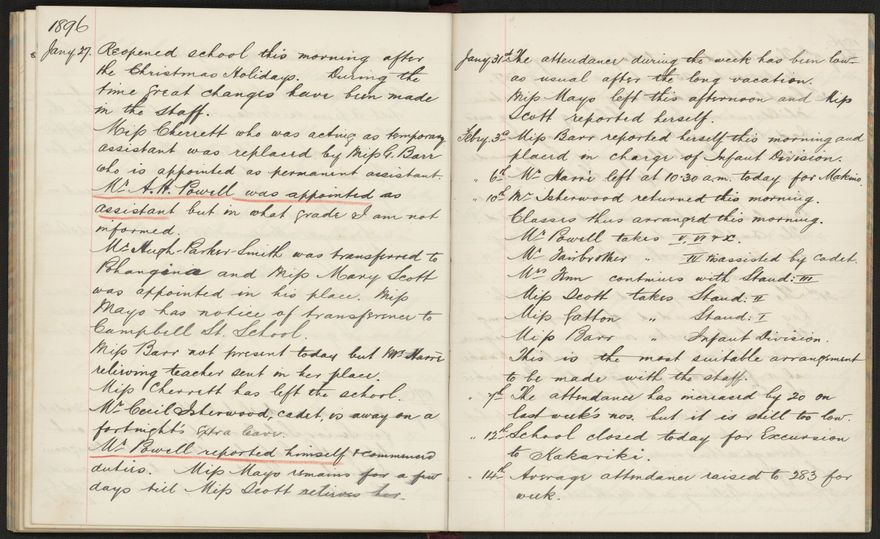 1896
Jany 27. Reopened school this morning after
the Christmas Holidays. During the
time great changes have been made
in the staff.
Miss Cherrett who was acting as temporary
assistant was replaced by Miss G. Barr
who is appointed as permanent assistant.
Mr A. H. Powell was appointed as
assistant but in what grade I am not
informed.
Mr Hugh-Parker-Smith was transferred to
Pohangina and Miss Mary Scott
was appointed in his place. Miss
Mayo has notice of transference to
Campbell St. School.
Miss Barr not present today but Mrs Harris
relieving teacher sent in her place.
Miss Cherrett has left the school.
Mr Cecil Isherwood, cadet, is away on a
fortnight's extra leave.
Mr Powell reported himself & commenced
duties. Miss Mayo remains for a few
days till Miss Scott relieves her.
Jany 31st The attendance during the week has been low
as usual after the long vacation.
Miss Mayo left this afternoon and Miss
Scott reported herself.
Feby. 3d Miss Barr reported herself this morning and
placed in charge of Infant Division.
" 6th Mrs Harris left at 10.30 a.m. today for Makino.
" 10th Mr Isherwood returned this morning.
Classes thus arranged this morning.
Mr Powell takes V, VI & X.
Mr Fairbrother " IV assisted by cadet.
Mrs continues with Stand: III
Miss Scott takes Stand: II
Miss Gatton " Stand: I
Miss Barr " Infant Division.
This is the most suitable arrangement
to be made with the staff.
" 7th The attendance has increased by 20 on
last week's nos. but it is still too low.
" 12th School closed today for Excursion
to Kakariki.
" 14th Average attendance raised to 283 for
week.